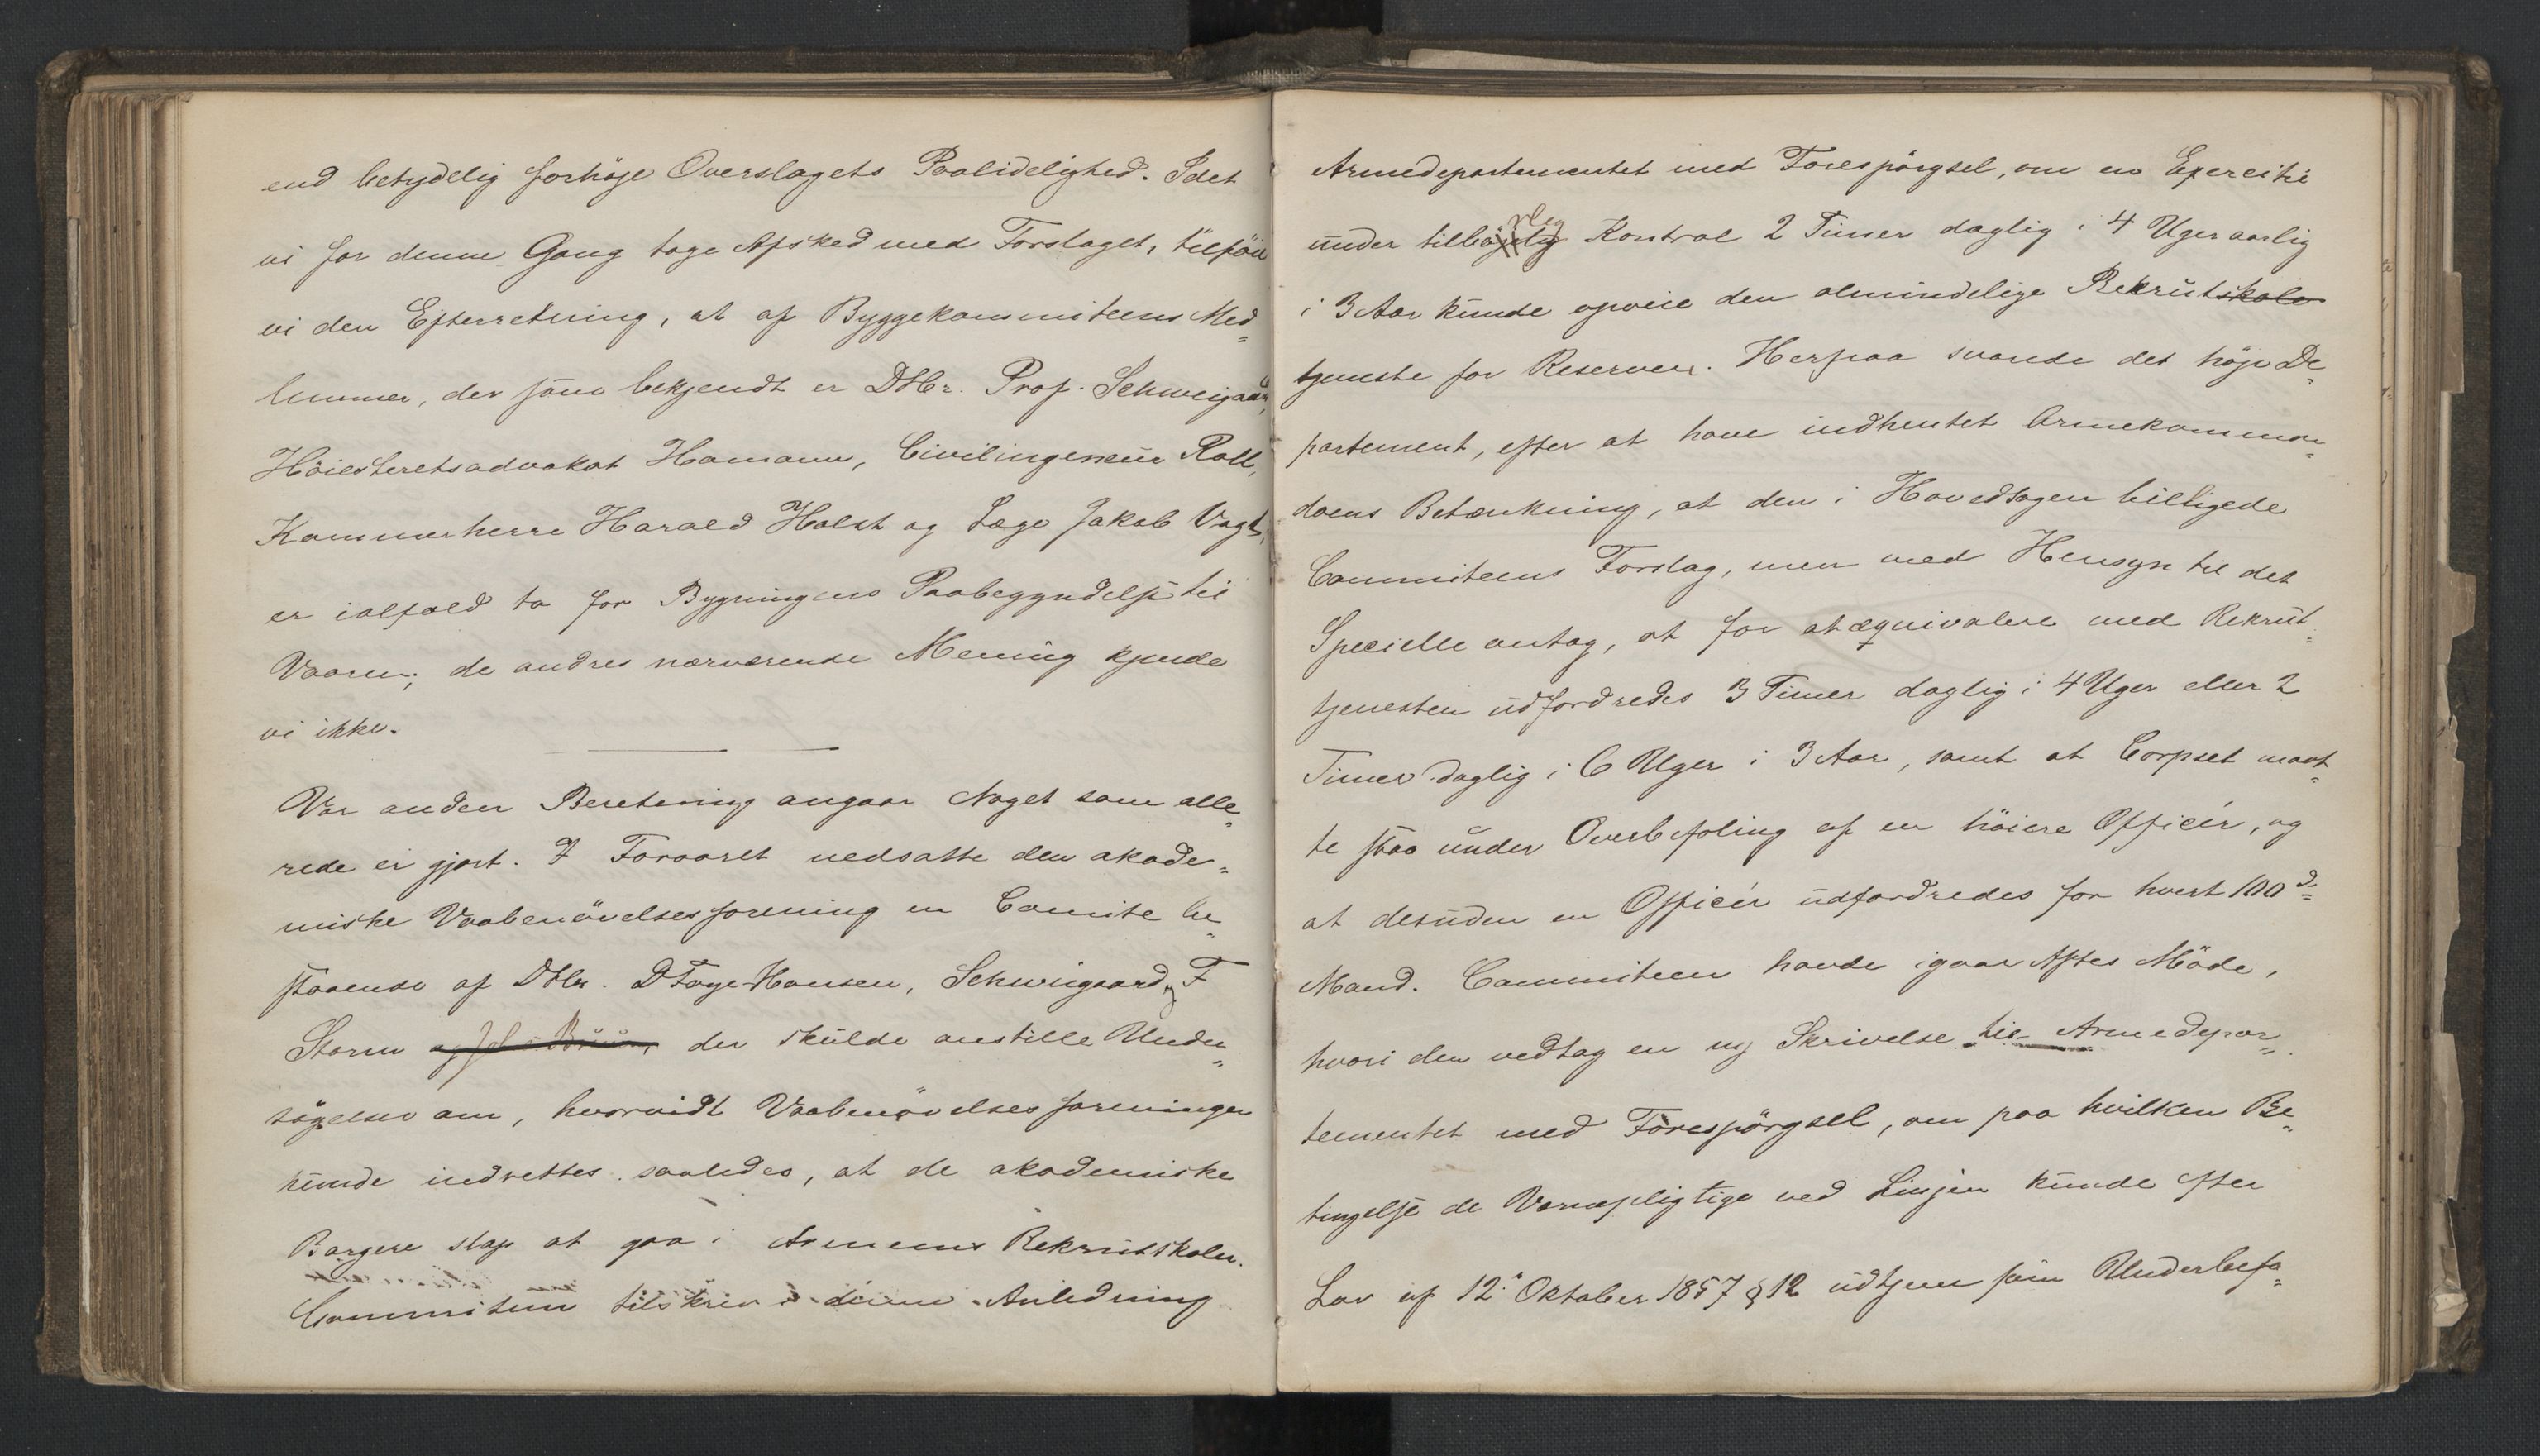 end betydelig forhöje Overslagets Paalidelighed. Idet
vi for denne Gang tage Afsked med Forslaget, tilföie
vi den Efterretning, at af Byggekommiteens Med=
lemmer, der som bekjendt er DHr. Prof. Schweigaard,
Höiesteretsadvokat Hamann, Civilingeneur Roll,
Kammerherre Harald Holst og Læge Jakob Vogt,
er ialfald to for Bygningens Paabegyndelse til
Vaaren; de andres nærværende Mening kjende
vi ikke.
Vor anden Beretning angaar Noget som alle=
rede er gjort. I Foraaret nedsatte den akade=
miske Vaabenövelsesforening en Comite be=
staaende af DHr. D Faye-Hansen, Schweigaard og F
Storm der skulde anstille Under=
sögelser om, hvorvidt Vaabenövelsesforeningen
kunde indrettes saaledes, at de akademiske
Borgere slap at gaa i Armeens Rekrutskoler.
Commiteen tilskrev i denne Anledning
Armedepartementet med Forespörgsel, om en Exercitie
under tilbörlig Kontrol 2 Timer daglig i 4 Uger aarlig
i 3 Aar kunde opveie den almindelige Rekrutskole
tjeneste for Reserven. Herpaa svarede det höje De=
partement, efter at have indhentet Armekomman=
doens Betænkning, at den i Hovedsagen billigede
Commiteens Forslag, men med Hensyn til det
Specielle antog, at for at æquivalere med Rekrut=
tjenesten udfordredes 3 Timer daglig i 4 Uger eller 2
Timer daglig i 6 Uger i 3 Aar, samt at Corpset maat=
te staa under Overbefaling af en höiere Officér, og
at desuden en Officér udfordredes for hvert 100de
Mand. Commiteen havde igaar Aftes Möde,
hvori den vedtog en ny Skrivelse til Armedepar=
tementet med Forespörgsel, om paa hvilken Be=
tingelse de Vernepligtige ved Linjen kunde efter
Lov af 12. Oktober 1857 § 12 udtjene som Underbefa=